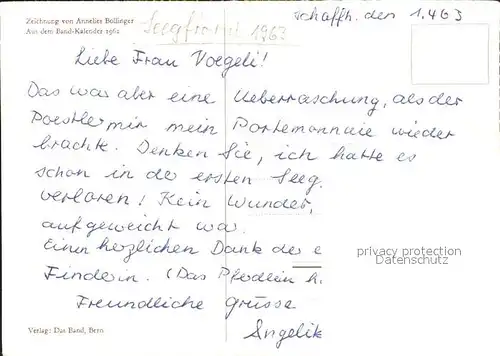 Zeichnung von Annelies Bollinger
Aus dem Band-Kalender 1962
Seegfrörni 1963
Schaffh. den 1.463
Liebe Frau Voegeli!
Das war aber eine Ueberraschung, als der
Poestler mir mein Portemonnaie wieder
brachte. Denken Sie, ich hatte es
schon in der ersten Seeg.
verloren! Kein Wunder,
aufgeweicht war.
Einen herzlichen Dank der e
Finderin. (Das Pfödlein h.
Freundliche Grüsse
Angelik
privacy protection
Datenschutz
Verlag: Das Band, Bern